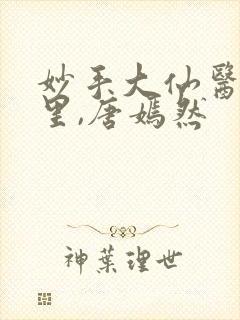 妙手大仙醫
里,唐嫣然
神葉理世